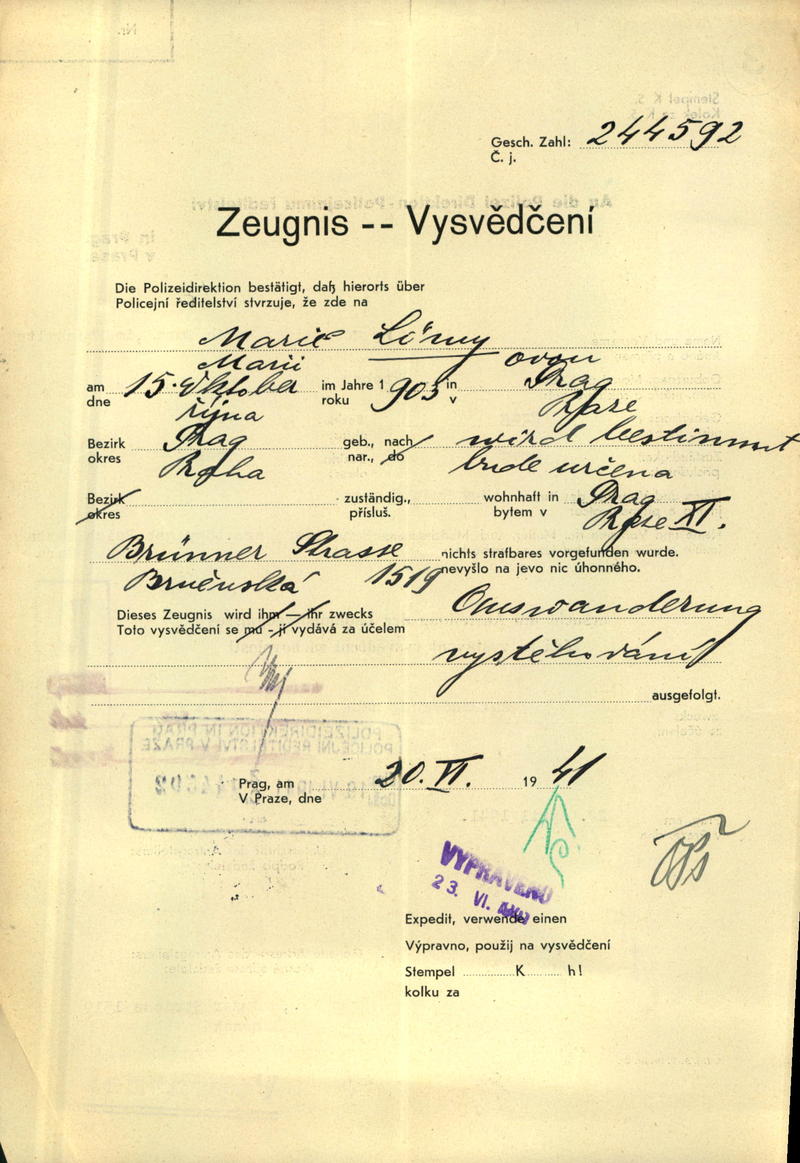 Gesch. Zahl: 244592
Č. j.
Zeugnis -- Vysvědčení
Die Polizeidirektion bestätigt, daß hierorts über
Policejní ředitelství stvrzuje, že zde na
Marie
Marii
am 15. Oktober im Jahre 1905 in Prag
dne října roku v Praze
Bezirk Prag geb., nach wird bestimmt
okres Praha nar., do bude určena
Bezirk zuständig., wohnhaft in Prag
okres přísluš. bytem v Praze XI.
Brünner Strasse nichts strafbares vorgefunden wurde.
Brněnská 1519 nevyšlo na jevo nic úhonného.
Dieses Zeugnis wird ihm — ihr zwecks Auswanderung
Toto vysvědčení se mu - jí vydává za účelem
vystěhování
ausgefolgt.
POLIZEIDIREKTION IN PRAG
POLICEJNÍ ŘEDITELSTVÍ V PRAZE
Prag, am 20. VI. 1941
V Praze, dne
VYPRAVENO
23. VI.
Expedit, verwende einen
Výpravno, použij na vysvědčení
Stempel K h!
kolku za